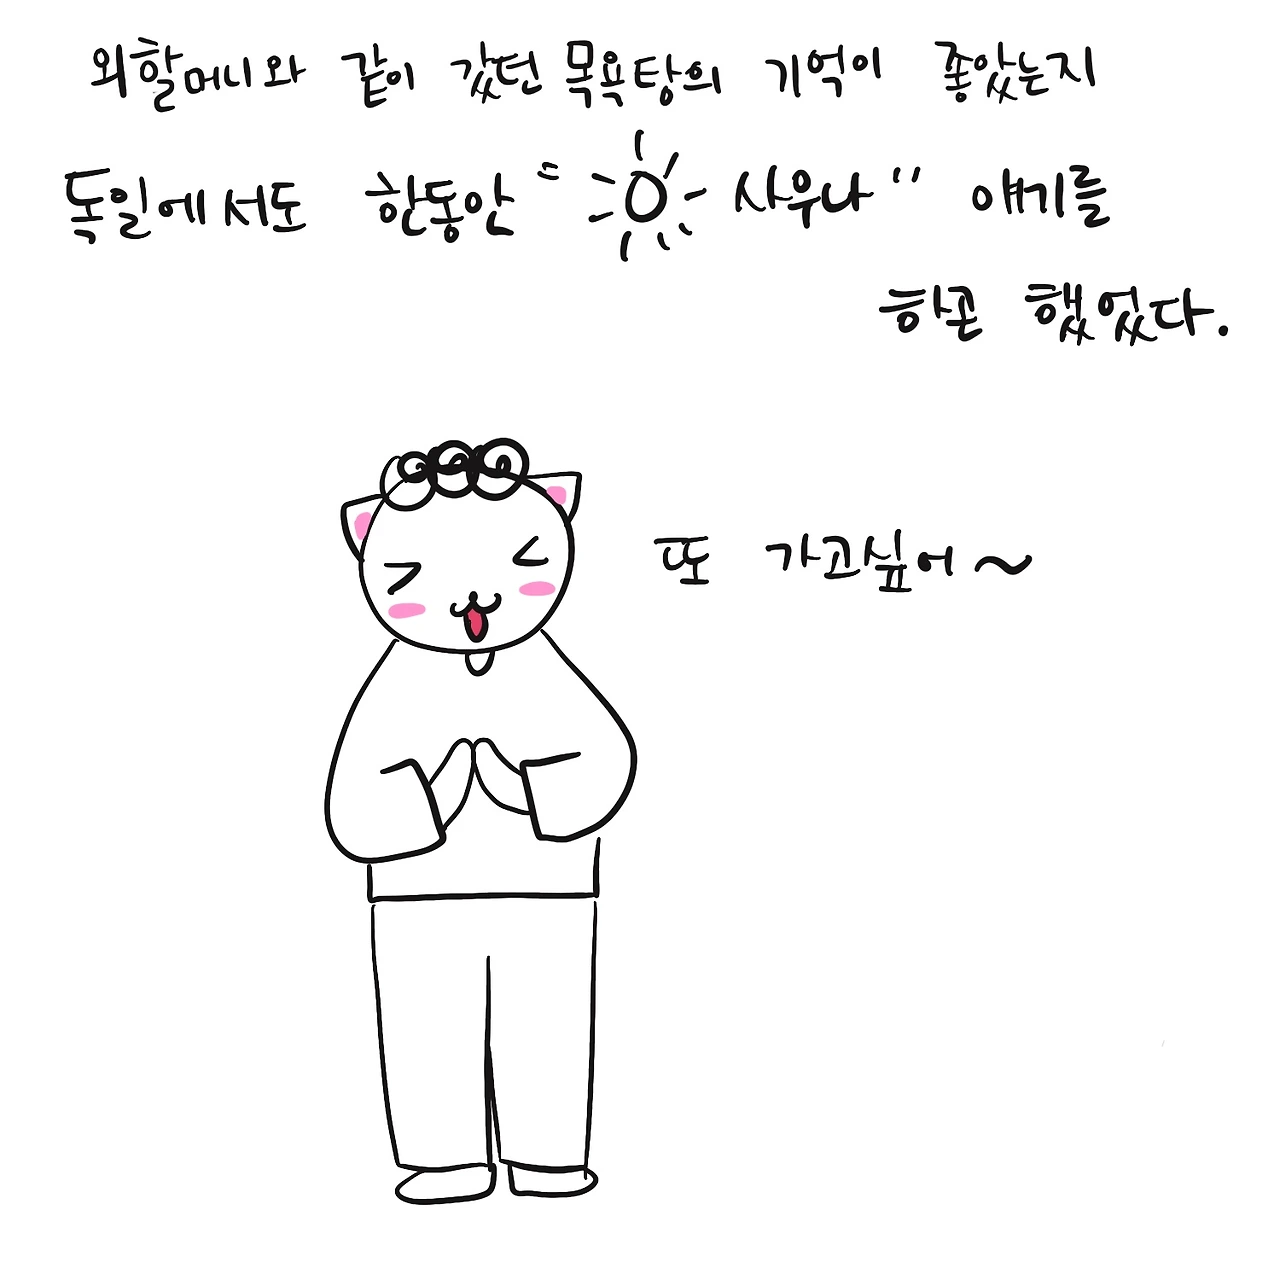 외할머니와 같이 갔던 목욕탕의 기억이 좋았는지
독일에서도 한동안 " 사우나" 얘기를
하곤 했었다.
또 가고싶어~